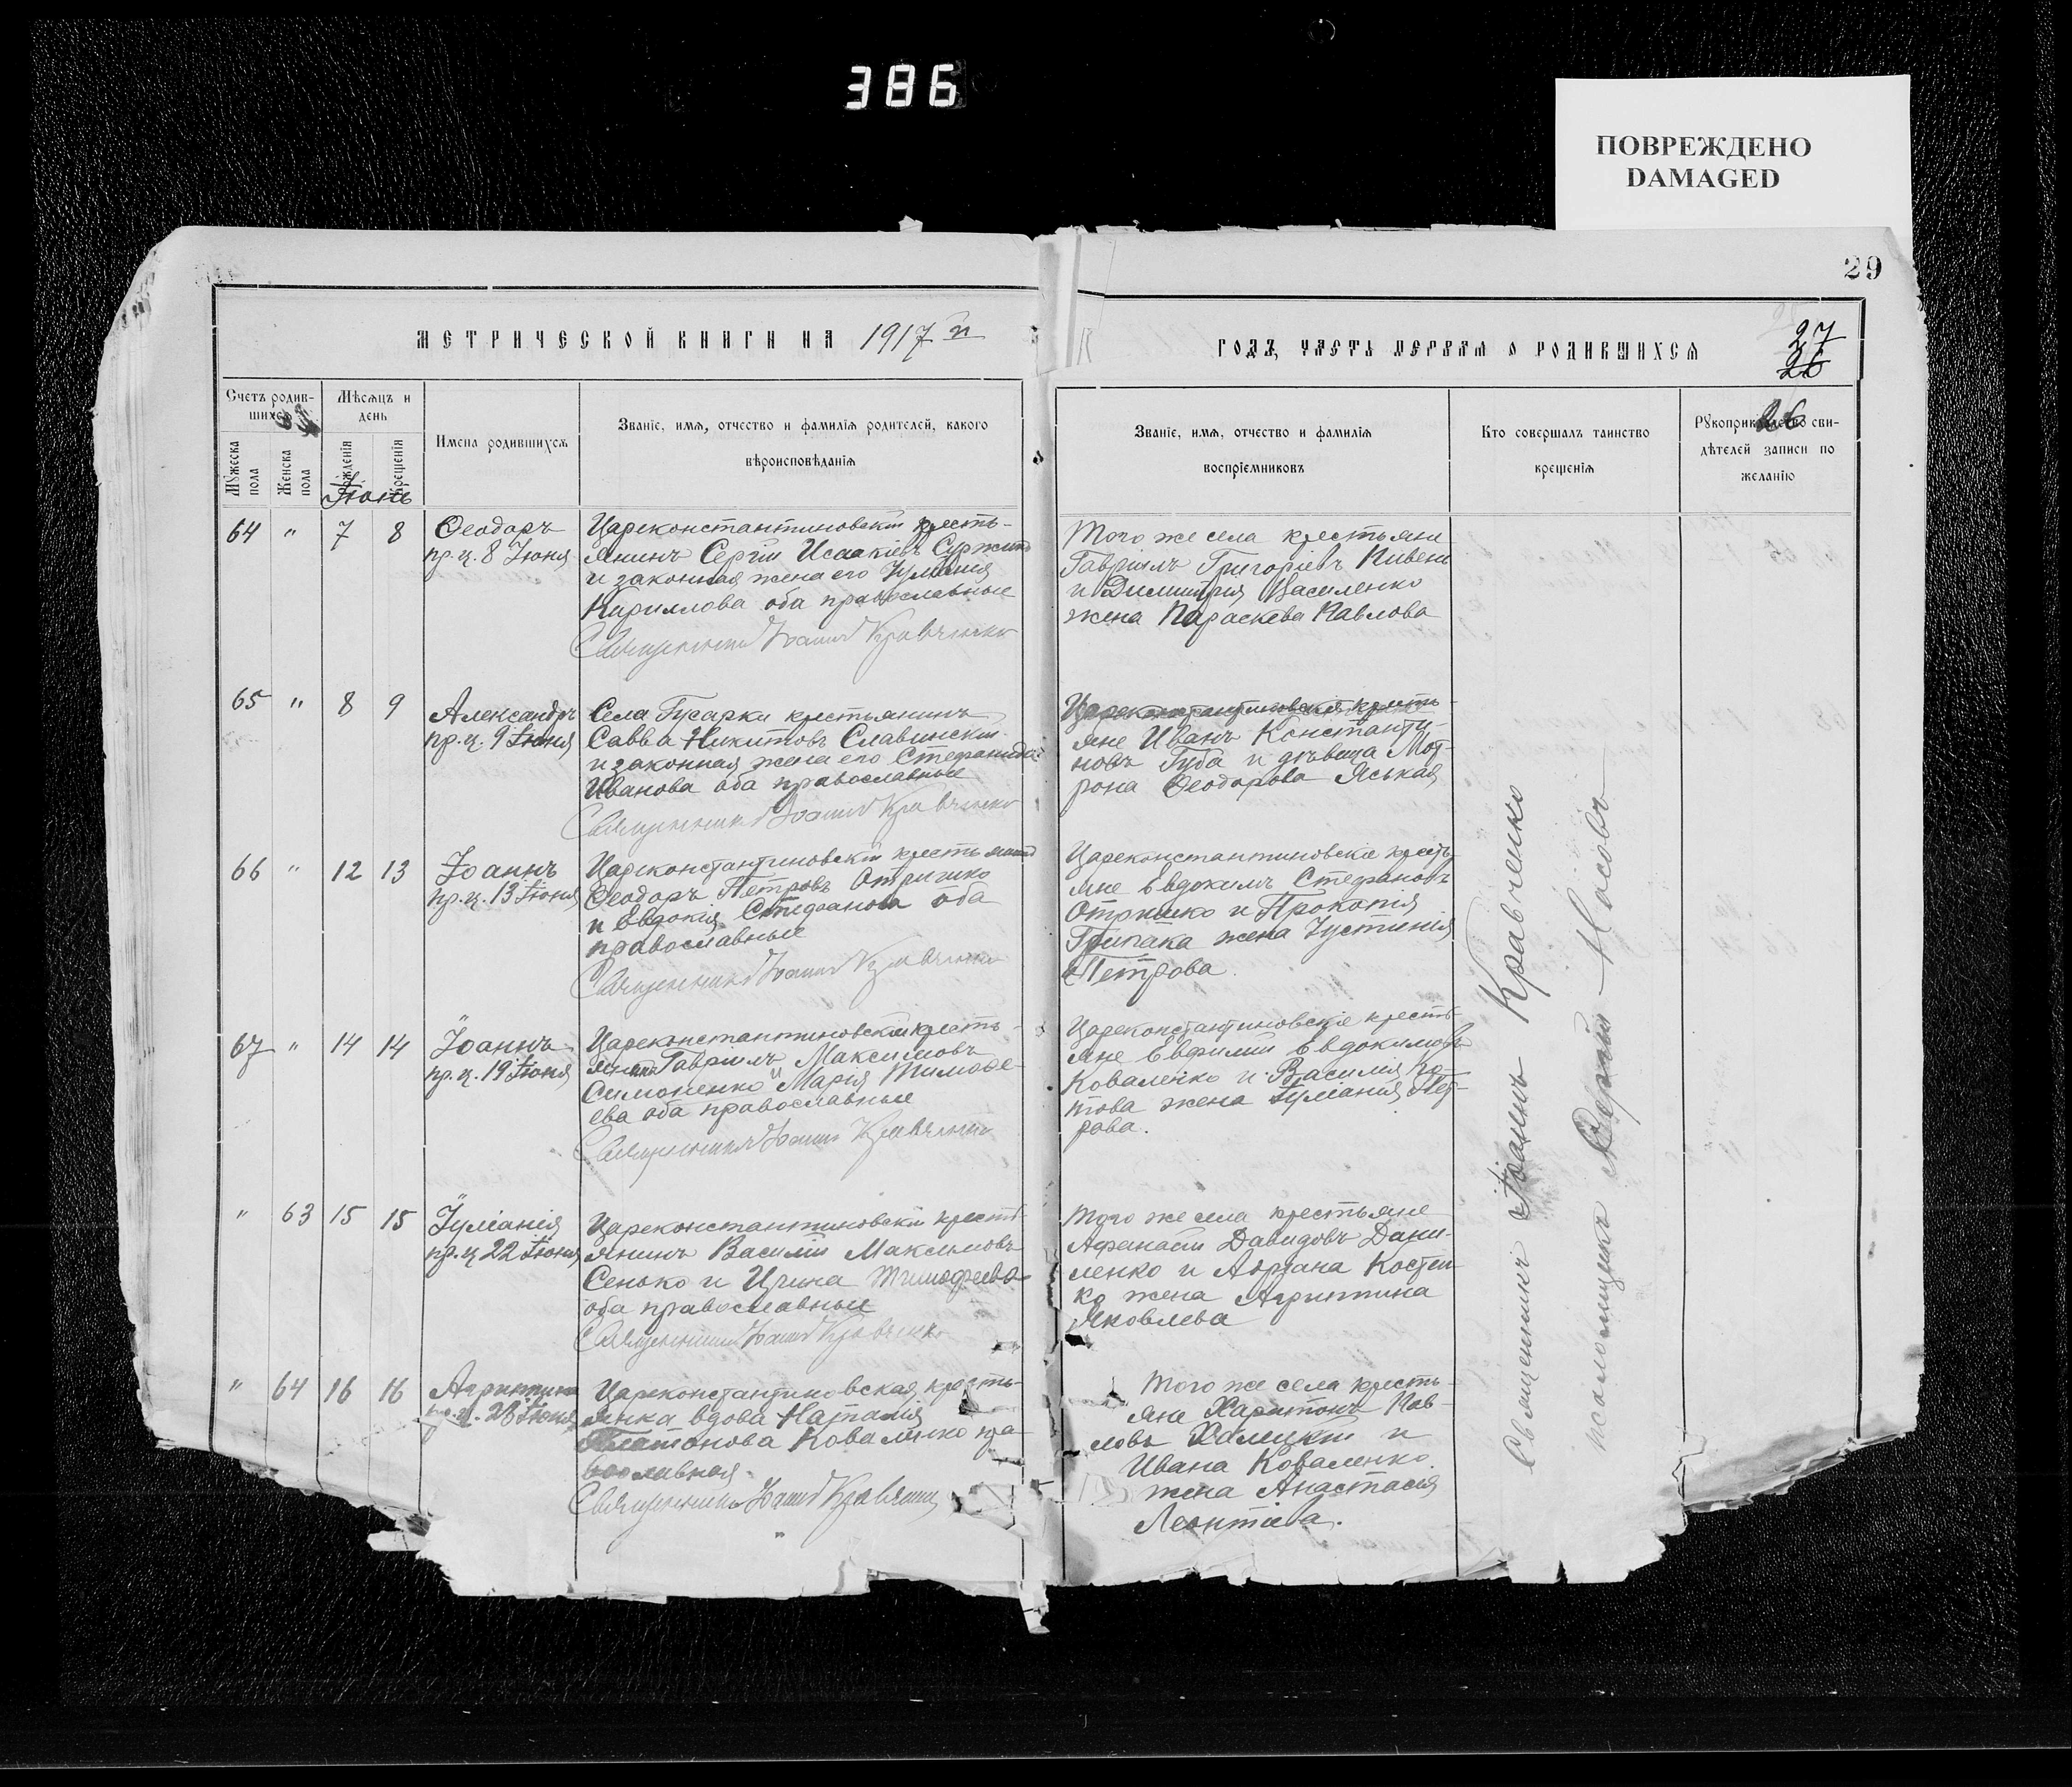 386
ПОВРЕЖДЕНО
DAMAGED
29
МЕТРИЧЕСКОЙ КНИГИ НА 1917 й
ГОДЪ, ЧАСТЬ ПЕРВАЯ О РОДИВШИХСЯ
27
26
Счетъ родив-
шихся
Мужеска пола
Женска пола
Мѣсяцъ и
день
рожденія
крещенія
Іюнь
Имена родившихся
Званіе, имя, отчество и фамилія родителей, какого
вѣроисповѣданія
Званіе, имя, отчество и фамилія
воспріемниковъ
Кто совершалъ таинство
крещенія
Рукоприкладство сви-
дѣтелей записи по
желанію
26
64 " 7 8
Ѳеодоръ
пр.ц. 8 Іюня
Цареконстантиновскій кресть-
янинъ Сергій Исаакіевъ
и законная жена его Іуліанія
Кириллова оба православные
Священникъ Іоаннъ Кравченко
Того же села крестьяне
Гавріилъ Григоріевъ Кивень
и Димитрія Василенко
жена Параскева Павлова
65 " 8 9
Александръ
пр.ц. 9 Іюня
Села Гусарки крестьянинъ
Савва Никитовъ Славинскій
и законная жена его Стефанида
Иванова оба православные
Священникъ Іоаннъ Кравченко
Цареконстантиновскіе кресть
яне Иванъ Константи-
новъ Губа и дѣвица Мот-
рона Ѳеодорова Яськая
66 " 12 13
Іоаннъ
пр.ц. 13 Іюня
Цареконстантиновскій крестьянинъ
Ѳеодоръ Петровъ Отришко
и Евдокія Стефанова оба
православные
Священникъ Іоаннъ Кравченко
Цареконстантиновскіе кресть-
яне Евдокимъ Стефановъ
Отришко и Прокопія
Грипака жена Іустинія
Петрова.
67 " 14 14
Іоаннъ
пр.ц. 19 Іюня
Цареконстантиновскій кресть-
янинъ Гавріилъ Максимовъ
Симоненко и Марія Тимоѳе-
ева оба православные
Священникъ Іоаннъ Кравченко
Цареконстантиновскіе кресть-
яне Евфимій Евдокимовъ
Коваленко и Василія Ко-
това жена Іуліанія Пет-
рова.
" 63 15 15
Іуліанія
пр.ц 22 Іюня
Цареконстантиновскій кресть-
янинъ Василій Максимовъ
Сенько и Ирина Тимофеева
оба православные
Священникъ Іоаннъ Кравченко
Того же села крестьяне
Афанасій Давидовъ Дани-
ленко и Адріана Костен-
ко жена Агрипина
Яковлева
" 64 16 16
Агрипина
пр.ц. 28 Іюня
Цареконстантиновская кресть-
янка вдова Наталія
Платонова Коваленко пра-
вославная.
Священникъ Іоаннъ Кравченко
Того же села кресть-
яне Харитонъ Пав-
ловъ и
Ивана Коваленко
жена Анастасія
Леонтіева.
Священникъ Іоаннъ Кравченко
псаломщикъ Сергій Носовъ